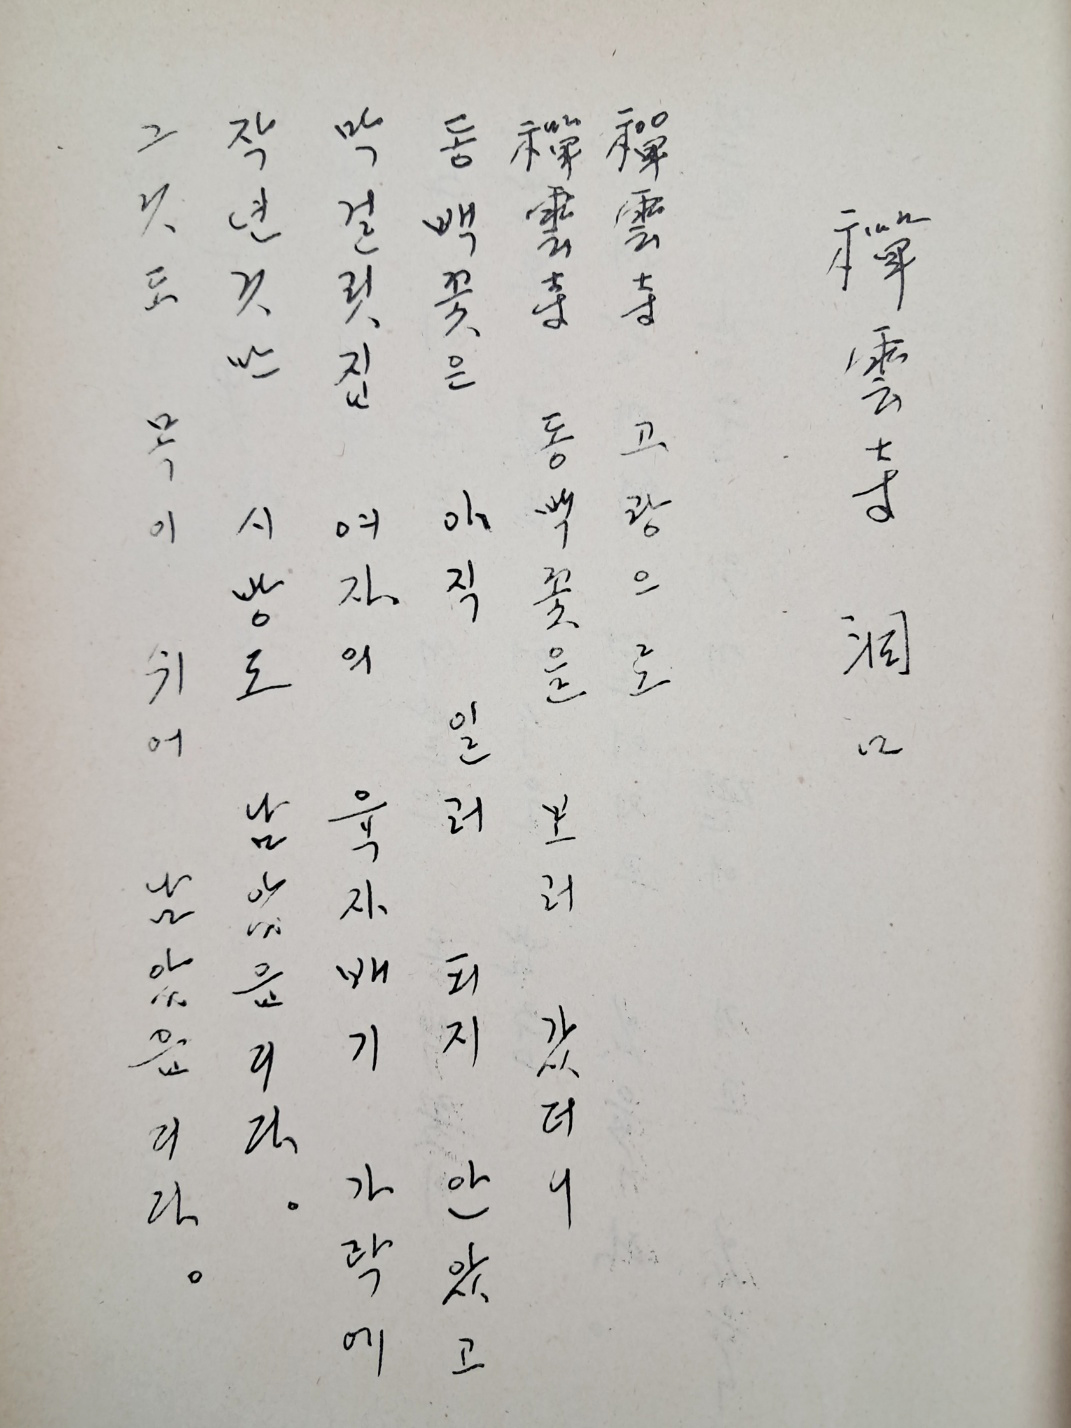 禪雲寺 洞口
禪雲寺 고랑으로
禪雲寺 동백꽃을 보러 갔더니
동백꽃은 아직 일러 피지 안했고
막걸릿집 여자의 육자배기 가락에
작년것만 시방도 남았읍디다.
그것도 목이 쉬어 남았읍디다.